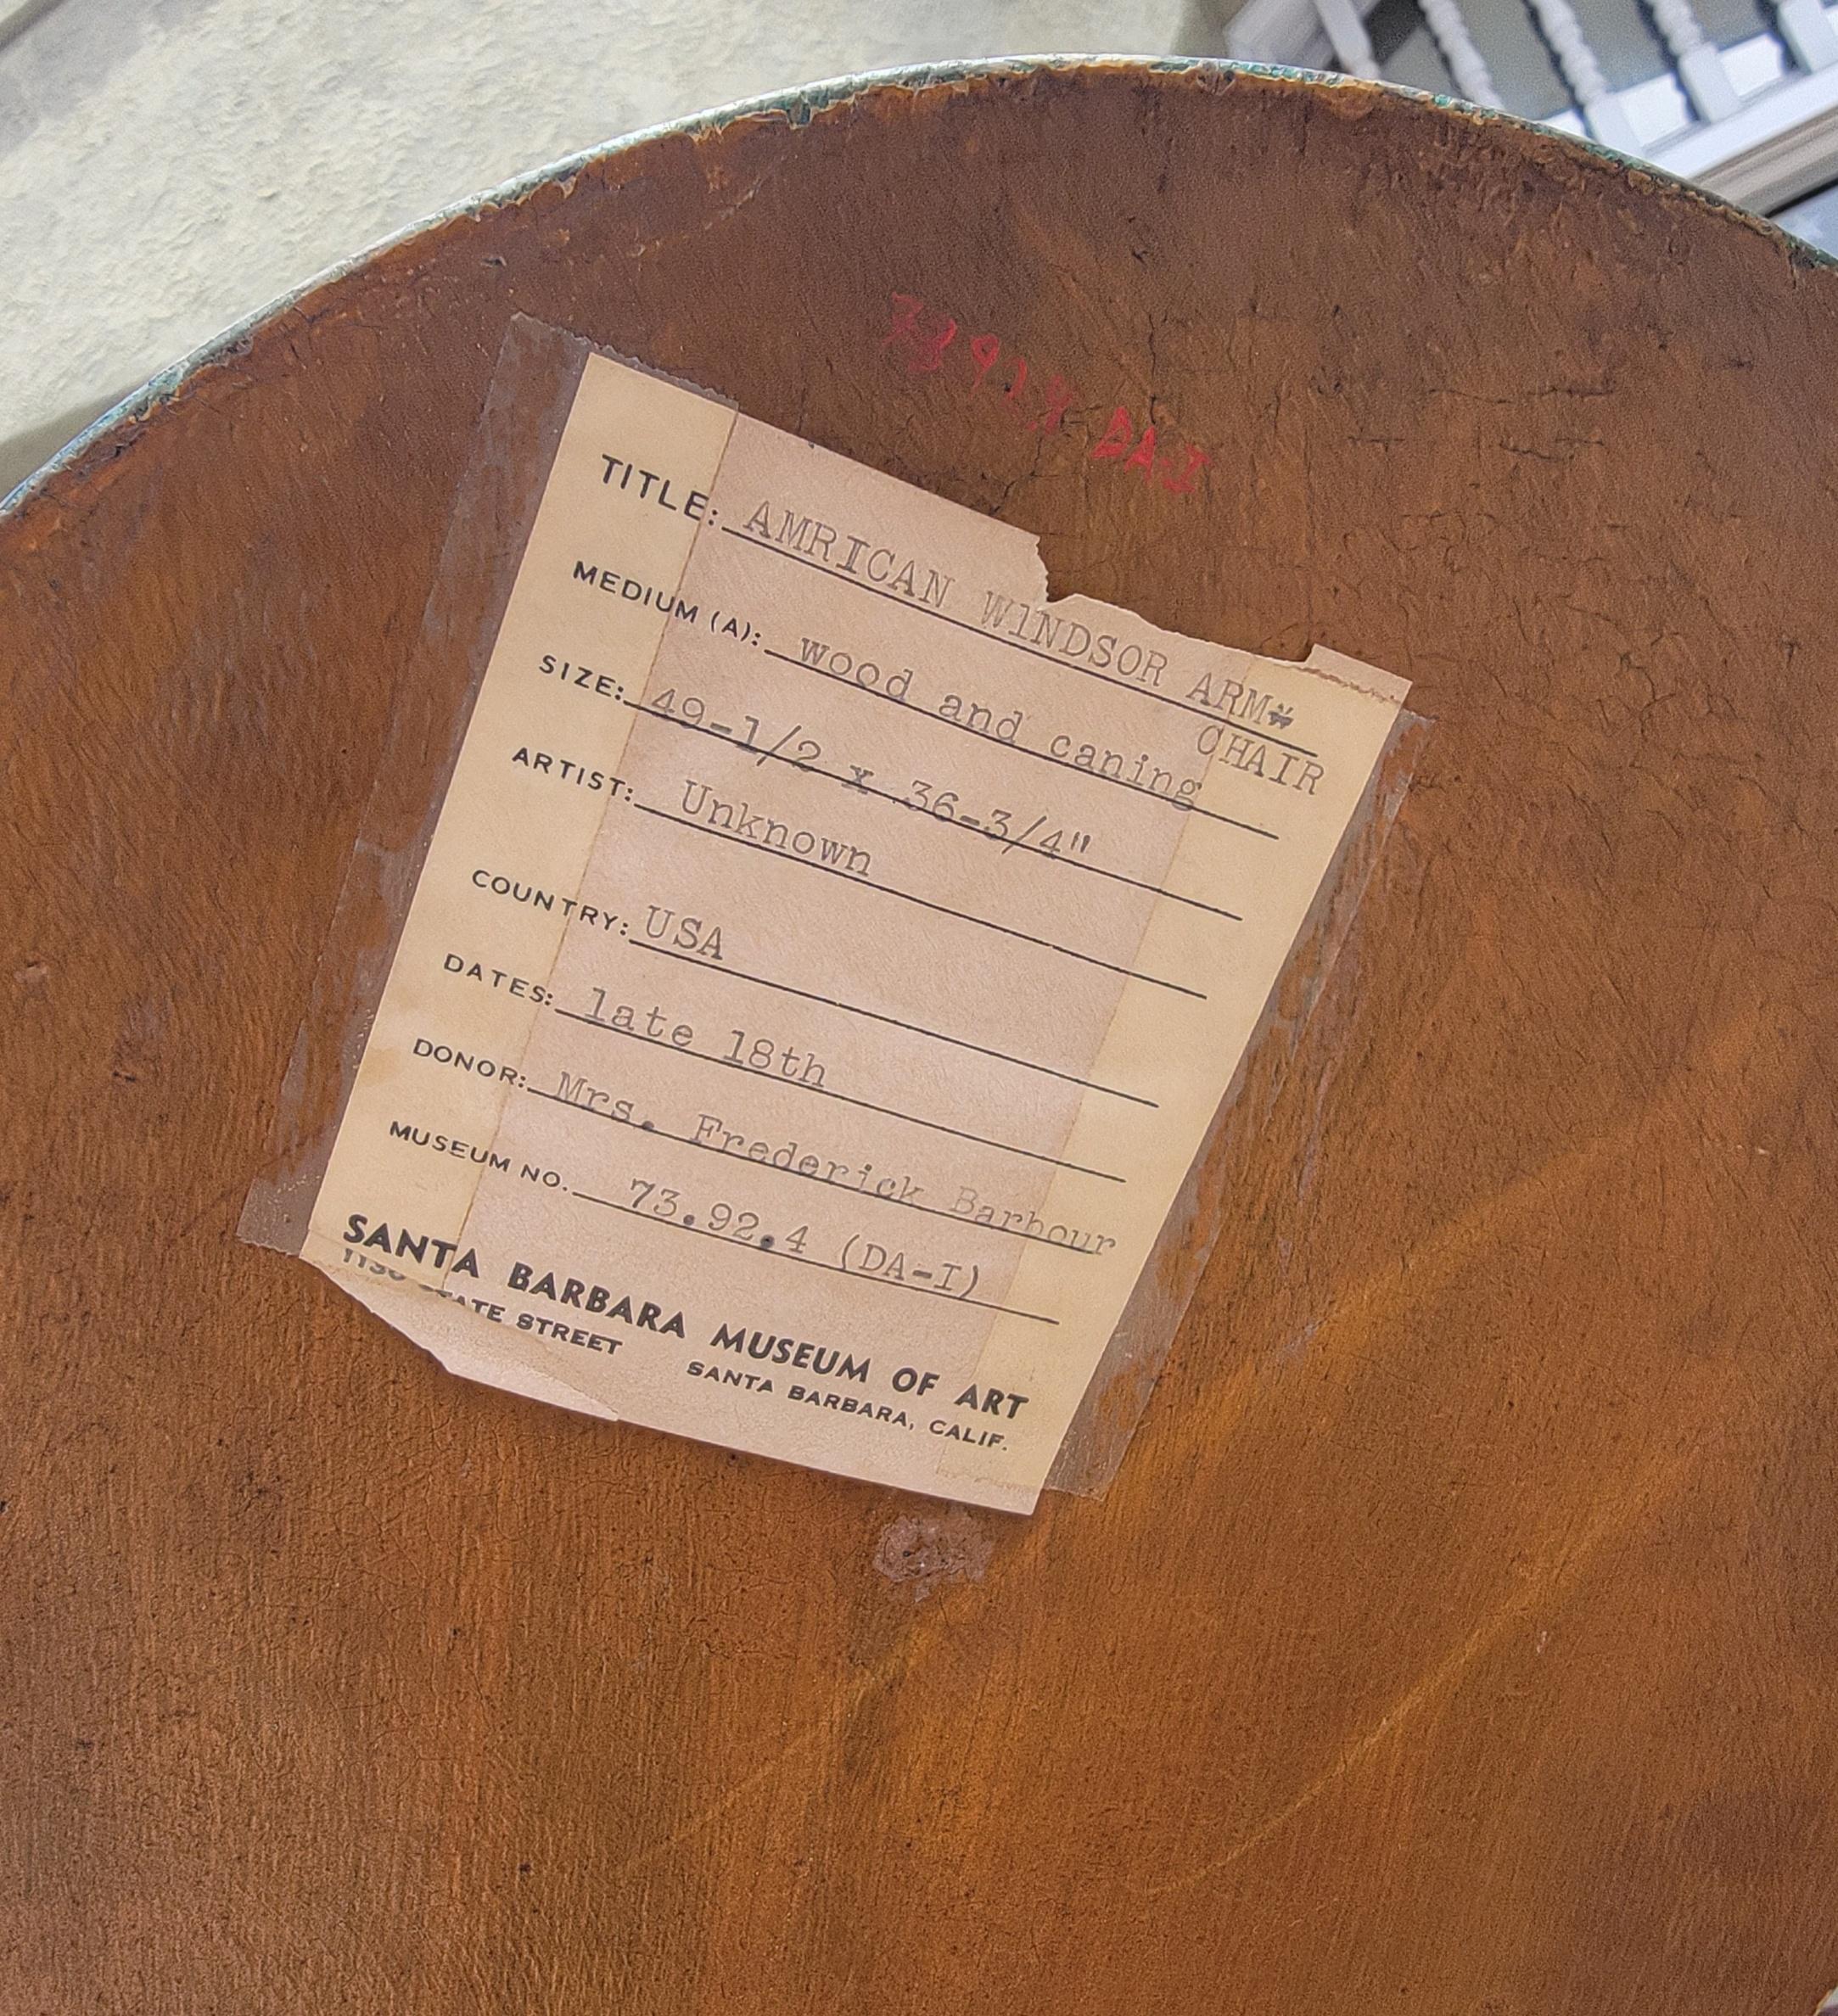 DA-I
TITLE: AMRICAN WINDSOR ARM
CHAIR
MEDIUM (A): wood and caning
SIZE: 49-1/2 x 36-3/4"
ARTIST: Unknown
COUNTRY: USA
DATES: late 18th
DONOR: Mrs. Frederick Barbour
MUSEUM NO. 73.92.4 (DA-I)
SANTA BARBARA MUSEUM OF ART
STREET SANTA BARBARA, CALIF.